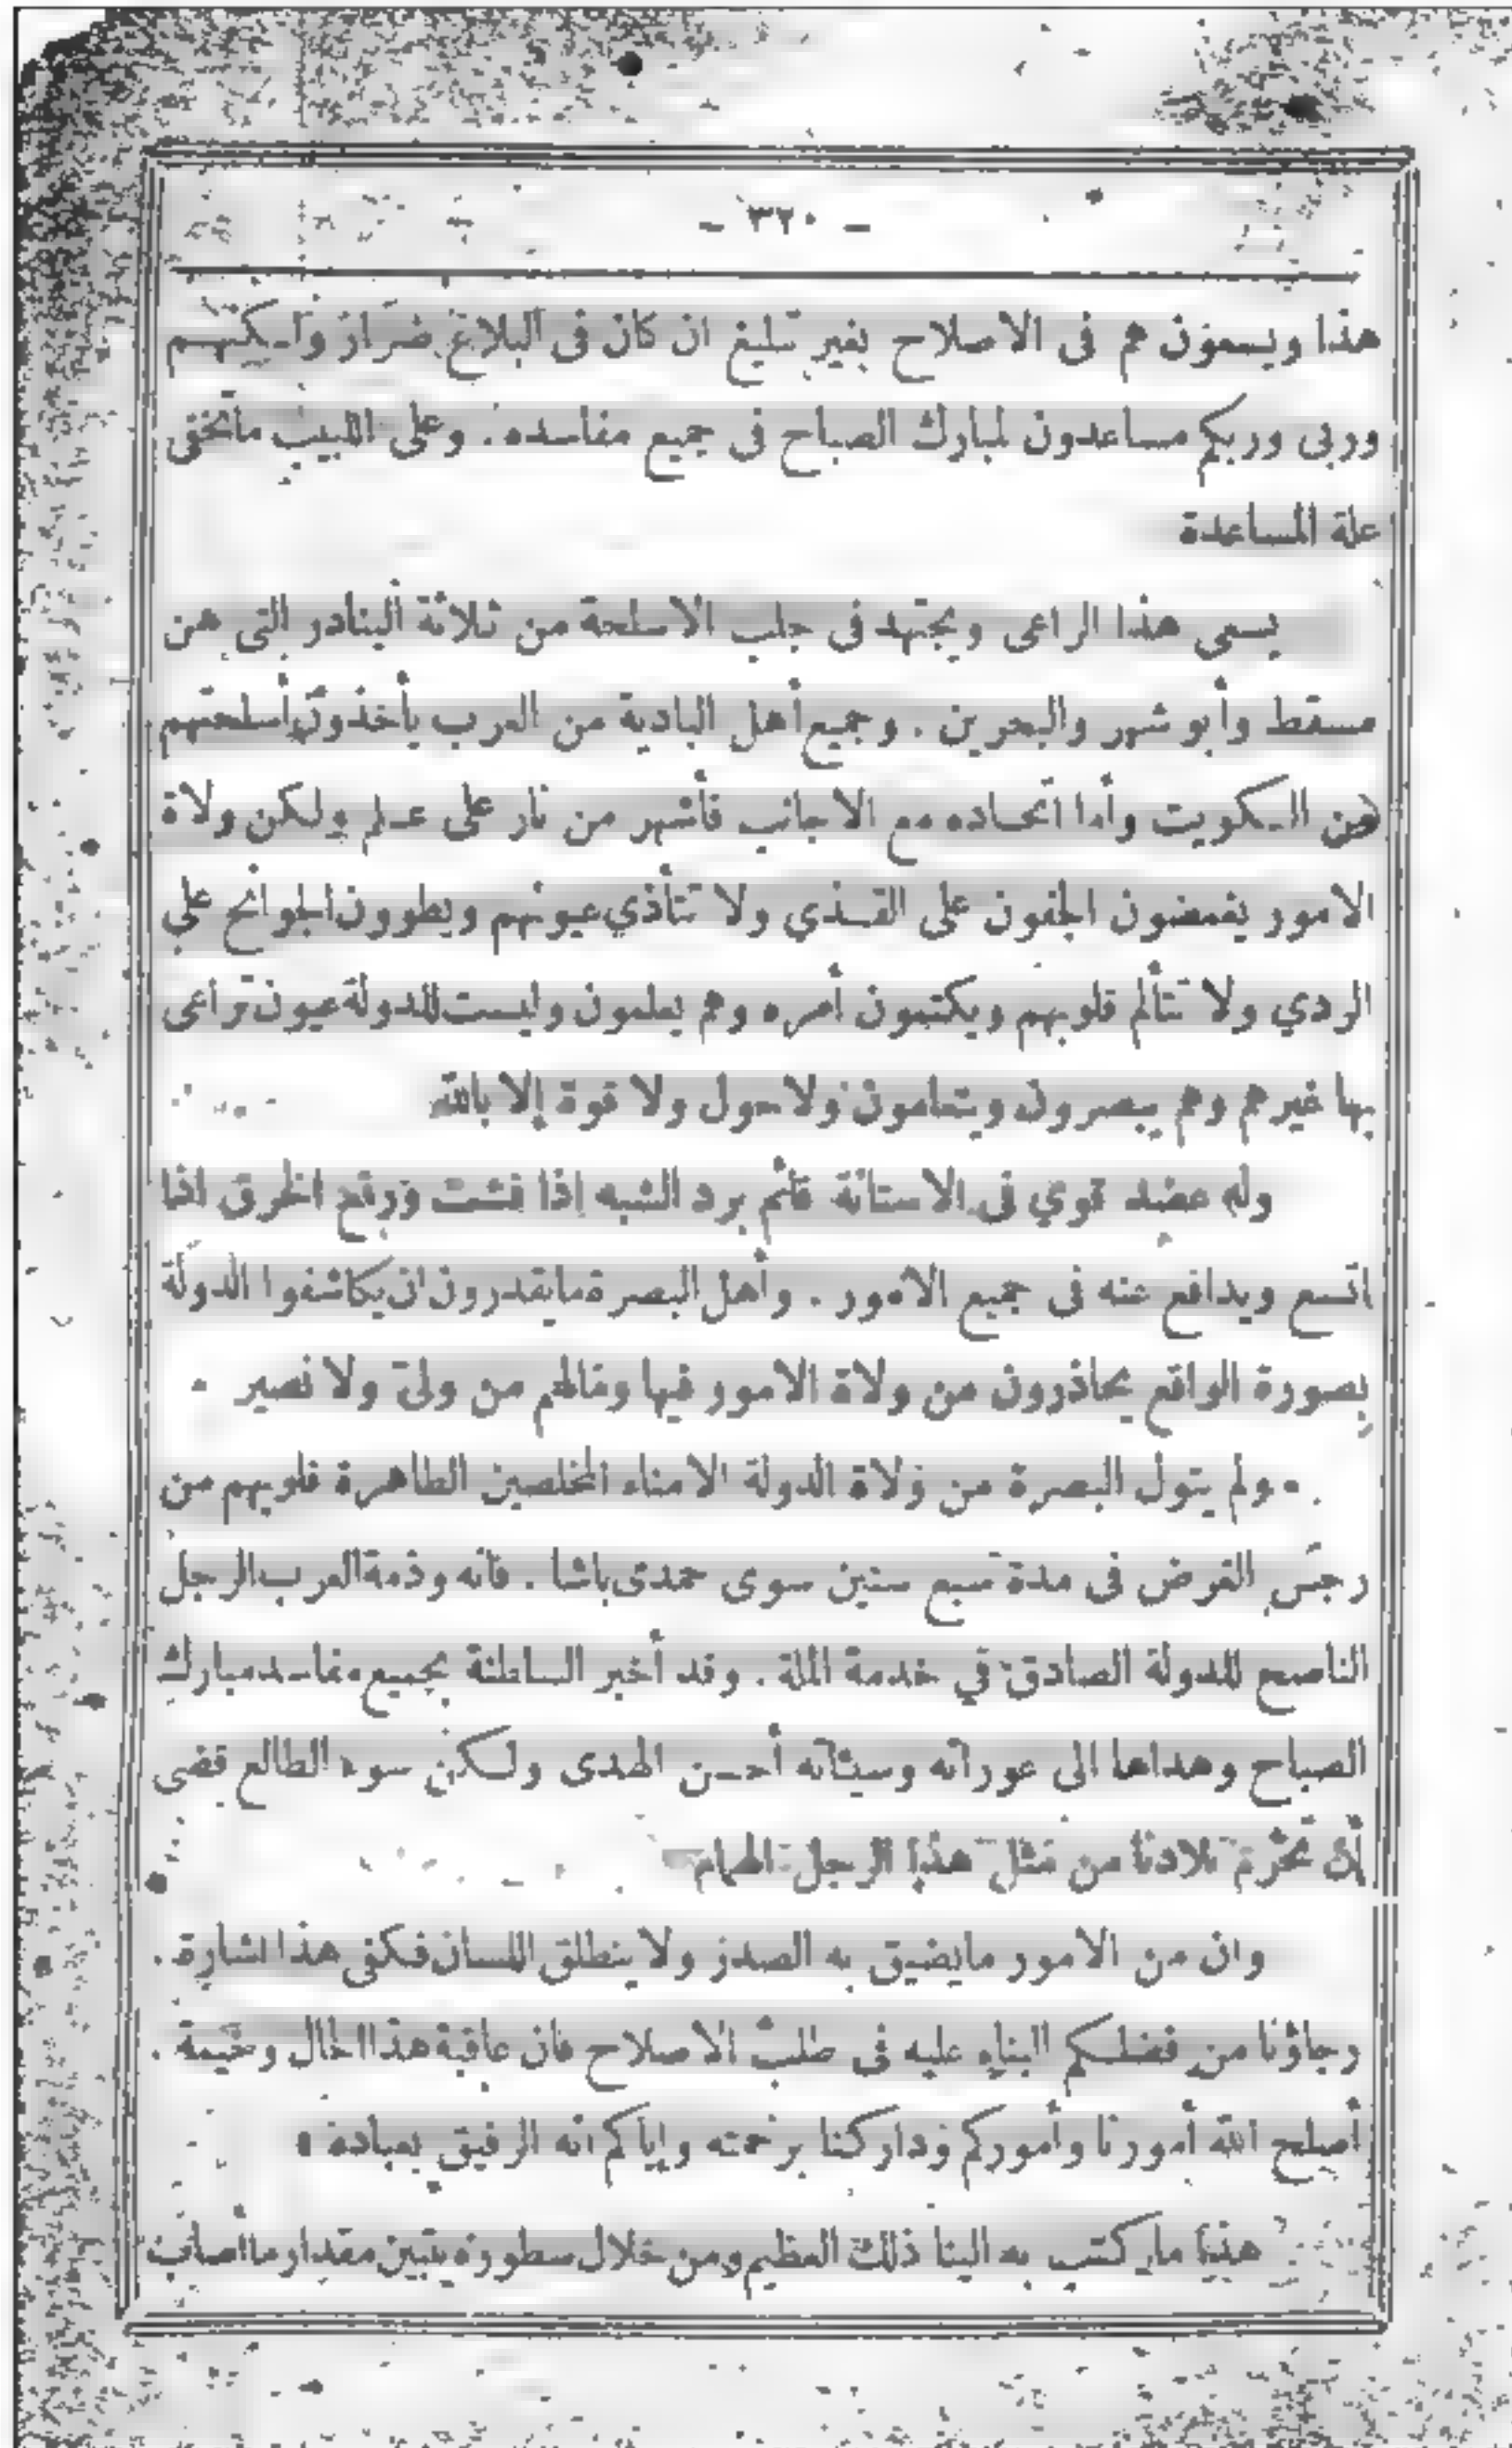 - ٣٢٠ -
هذا ويسعون هم فى الاصلاح بغير تبليغ ان كان فى البلاغ ضرار ولـكنهم
وربى وربكم مساعدون لمبارك الصباح فى جميع مفاسده . وعلى اللبيب ماتخفى
علة المساعدة
يسعى هذا الراعى ويجتهد فى جلب الاسلحة من ثلاثة البنادر التى هن
مسقط وأبو شهر والبحرين . وجميع أهل البادية من العرب يأخذون أسلحتهم
من الـكويت وأما اتحاده مع الاجانب فأشهر من نار على عـلم ولكن ولاة
الامور يغمضون الجفون على القـذي ولا تتأذي عيونهم ويطوون الجوانح على
الردي ولا تتألم قلوبهم ويكتمون أمره وهم يعلمون وليست للدولة عيون تراعى
بها غيرهم وهم يبصرون ويتعامون ولا حول ولا قوة إلا بالله
وله عضد قوي فى الاستانة قائم برد الشبه إذا فشت ورقع الخرق اذا
اتسع ويدافع عنه فى جميع الامور . وأهل البصرة مايقدرون ان يكاشفوا الدولة
بصورة الواقع يحاذرون من ولاة الامور فيها ومالهم من ولىّ ولا نصير .
ولم يتول البصرة من ولاة الدولة الامناء المخلصين الطاهرة قلوبهم من
رجس الغرض فى مدة سبع سنين سوى حمدى باشا . فانه وذمة العرب الرجل
الناصح للدولة الصادق في خدمة الملة . وقد أخبر السلطنة بجميع مفاسد مبارك
الصباح وهداها الى عوراته وسيئاته أحـسن الهدى ولـكن سوء الطالع قضى
أن تحرم بلادنا من مثل هذا الرجل الهمام
وان من الامور مايضيق به الصدر ولا ينطلق اللسان فكفى هذا اشارة .
رجاؤنا من فضلـكم البناء عليه فى طلب الاصلاح فان عاقبة هذا الحال وخيمة .
أصلح الله أمورنا وأموركم وداركنا برحمته وإياكم انه الرفيق بعباده
هذا ما كتب به الينا ذلك العظيم ومن خلال سطوره يتبين مقدار ما أصاب